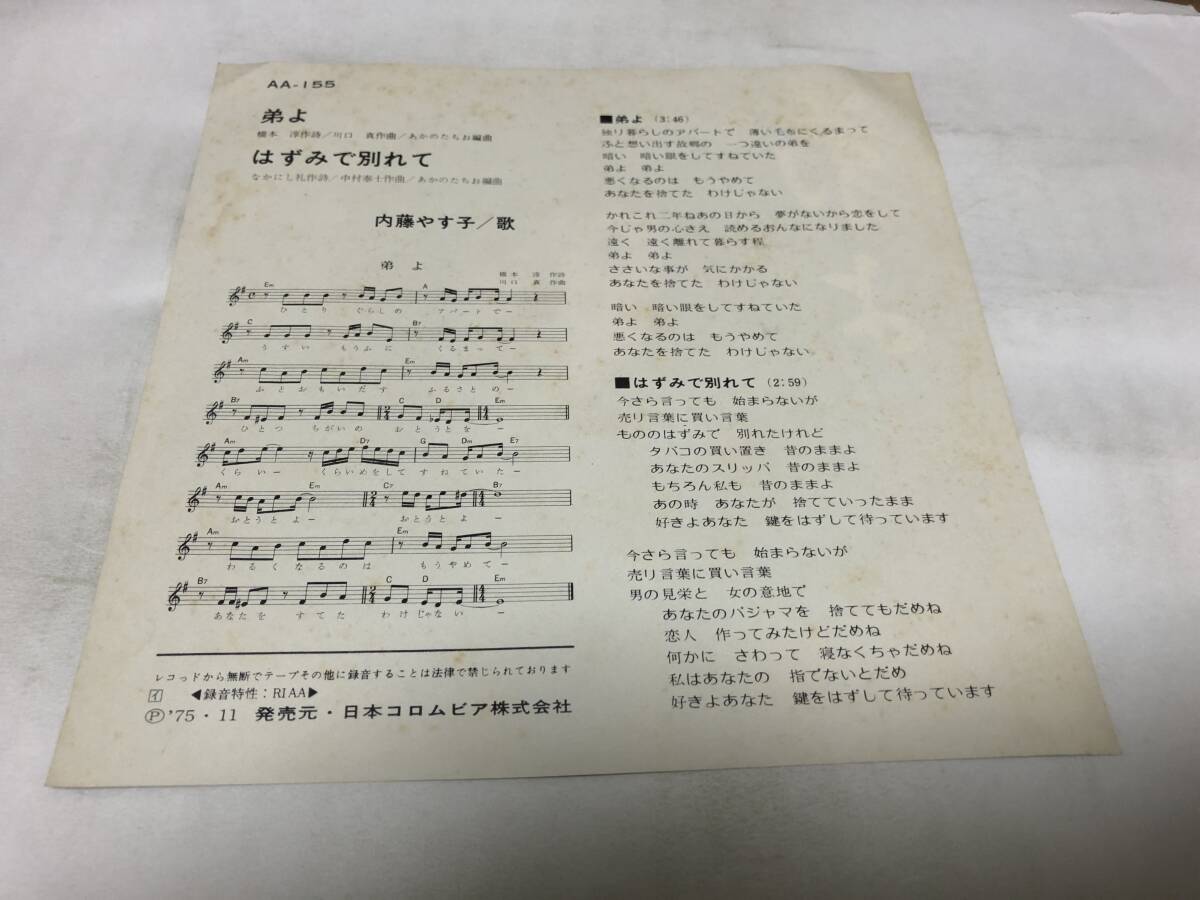 AA-155
弟よ
橋本 淳作詩/川口 真作曲/あかのたちお編曲
はずみで別れて
なかにし礼作詩/中村泰士作曲/あかのたちお編曲
内藤やす子/歌
弟 よ
橋本 淳 作詩
川口 真 作曲
Em A
ひとり ぐらしの アパートでー
C B7
うすい もうふに くるまってー
Am Em
ふとおもいだす ふるさとのー
B7 C D Em
ひとつ ちがいの おとうとをー
Am D7 G Dm E7
くらいー くらいめをして すねていたー
Am Em C7 B7
おとうとよー おとうとよー
Am Em
わるくなるのは もうやめてー
B7 C D Em
あなたを すてた わけじゃないー
レコードから無断でテープその他に録音することは法律で禁じられております
イ ◀録音特性:RIAA▶
Ⓟ'75・11 発売元・日本コロムビア株式会社
■弟よ (3:46)
独り暮らしのアパートで 薄い毛布にくるまって
ふと想い出す故郷の 一つ違いの弟を
暗い 暗い眼をしてすねていた
弟よ 弟よ
悪くなるのは もうやめて
あなたを捨てた わけじゃない
かれこれ二年ねあの日から 夢がないから恋をして
今じゃ男の心さえ 読めるおんなになりました
遠く 遠く離れて暮らす程
弟よ 弟よ
ささいな事が 気にかかる
あなたを捨てた わけじゃない
暗い 暗い眼をしてすねていた
弟よ 弟よ
悪くなるのは もうやめて
あなたを捨てた わけじゃない
■はずみで別れて (2:59)
今さら言っても 始まらないが
売り言葉に買い言葉
もののはずみで 別れたけれど
タバコの買い置き 昔のままよ
あなたのスリッパ 昔のままよ
もちろん私も 昔のままよ
あの時 あなたが 捨てていったまま
好きよあなた 鍵をはずして待っています
今さら言っても 始まらないが
売り言葉に買い言葉
男の見栄と 女の意地で
あなたのパジャマを 捨ててもだめね
恋人 作ってみたけどだめね
何かに さわって 寝なくちゃだめね
私はあなたの 指でないとだめ
好きよあなた 鍵をはずして待っています